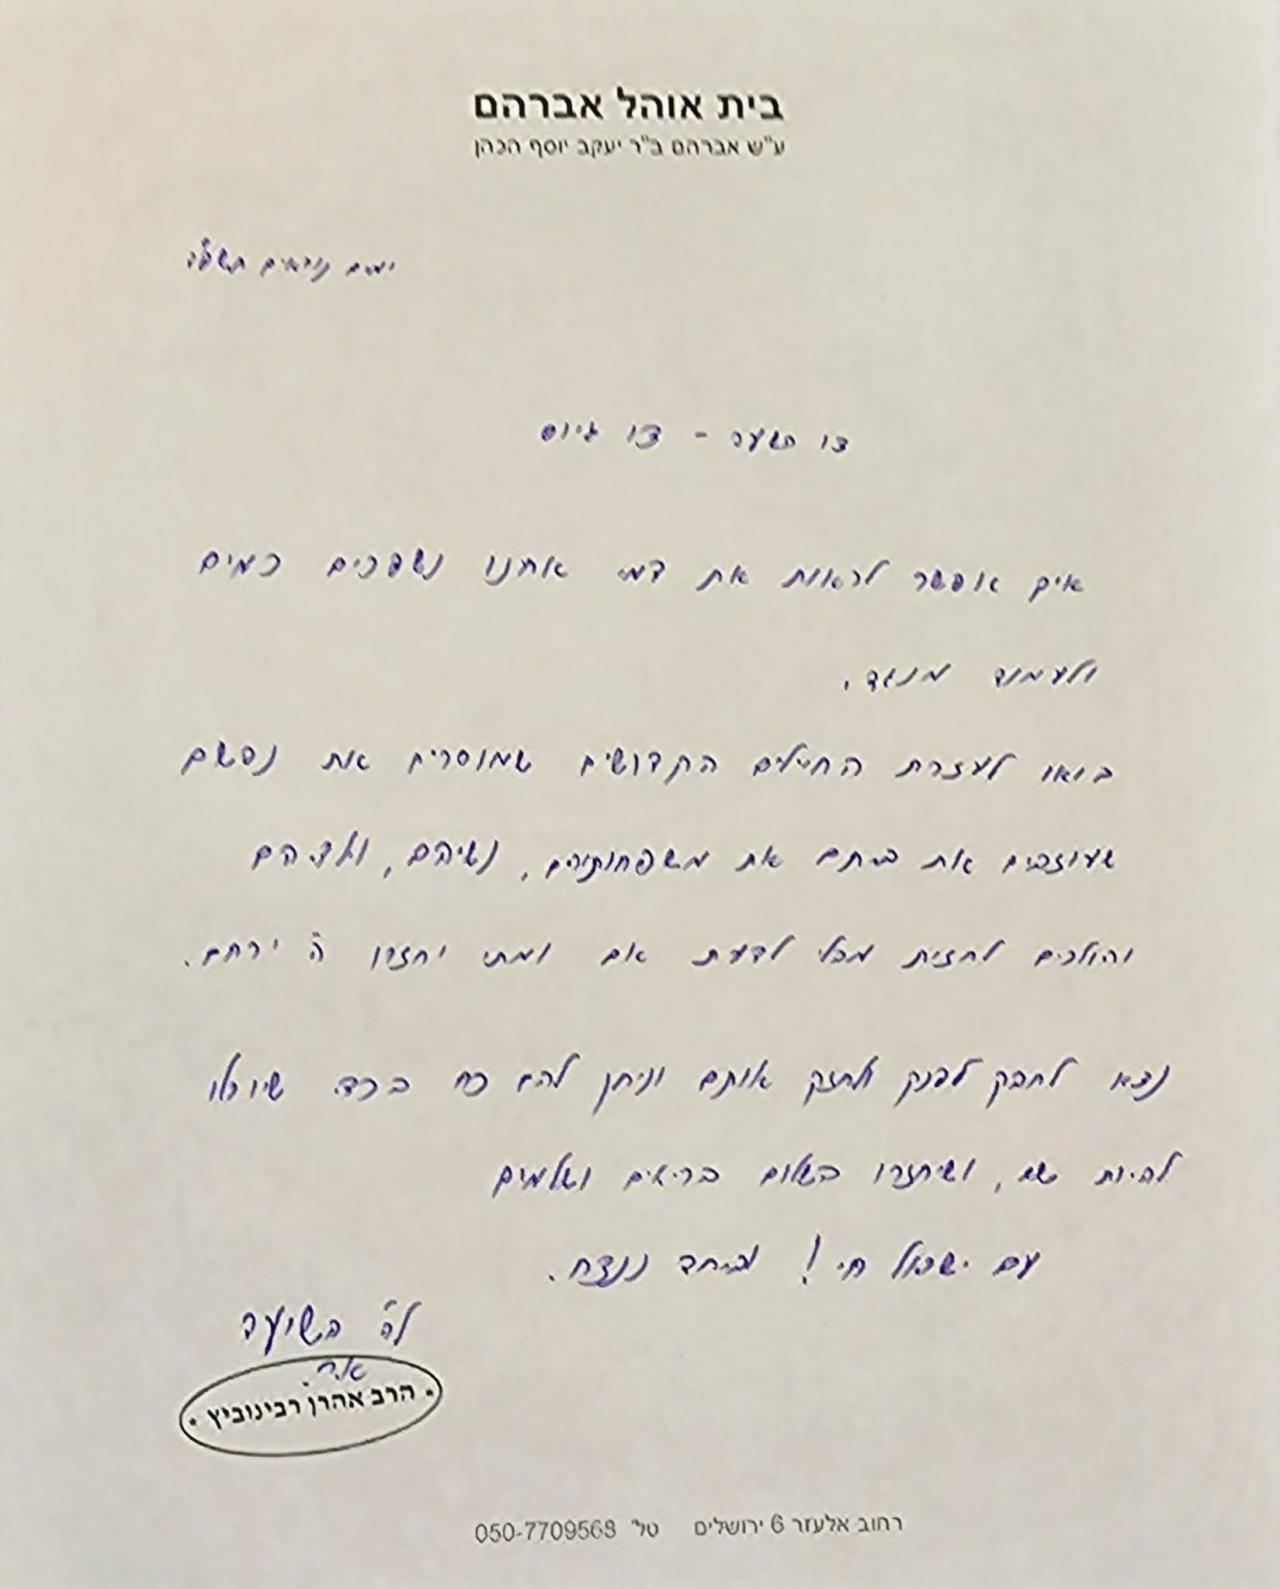 בית אוהל אברהם
ע"ש אברהם ב"ר יעקב יוסף הכהן
ימים נוראים תשפ"ה
צו השעה - צו גיוס
איך אפשר לראות את דמי אחנו נשפכים כמים
ולעמוד מנגד.
בואו לעזרת החיילים הקדושים שמוסרים את נפשם
שעוזבים את ביתם את משפחותיהם, נשיהם, ולדיהם
והולכים לחזית מבלי לדעת אם ומתי יחזרו ה' ירחם.
נצא לחבק לפנק ולחזק אותם וניתן להם כח בכדי שיוכלו
להיות שם, ושיחזרו בשלום בריאים ושלמים
עם ישראל חי! וביחד ננצח.
לה' הישועה
א.ר.
הרב אהרן רבינוביץ
רחוב אלעזר 6 ירושלים טל' 050-7709568